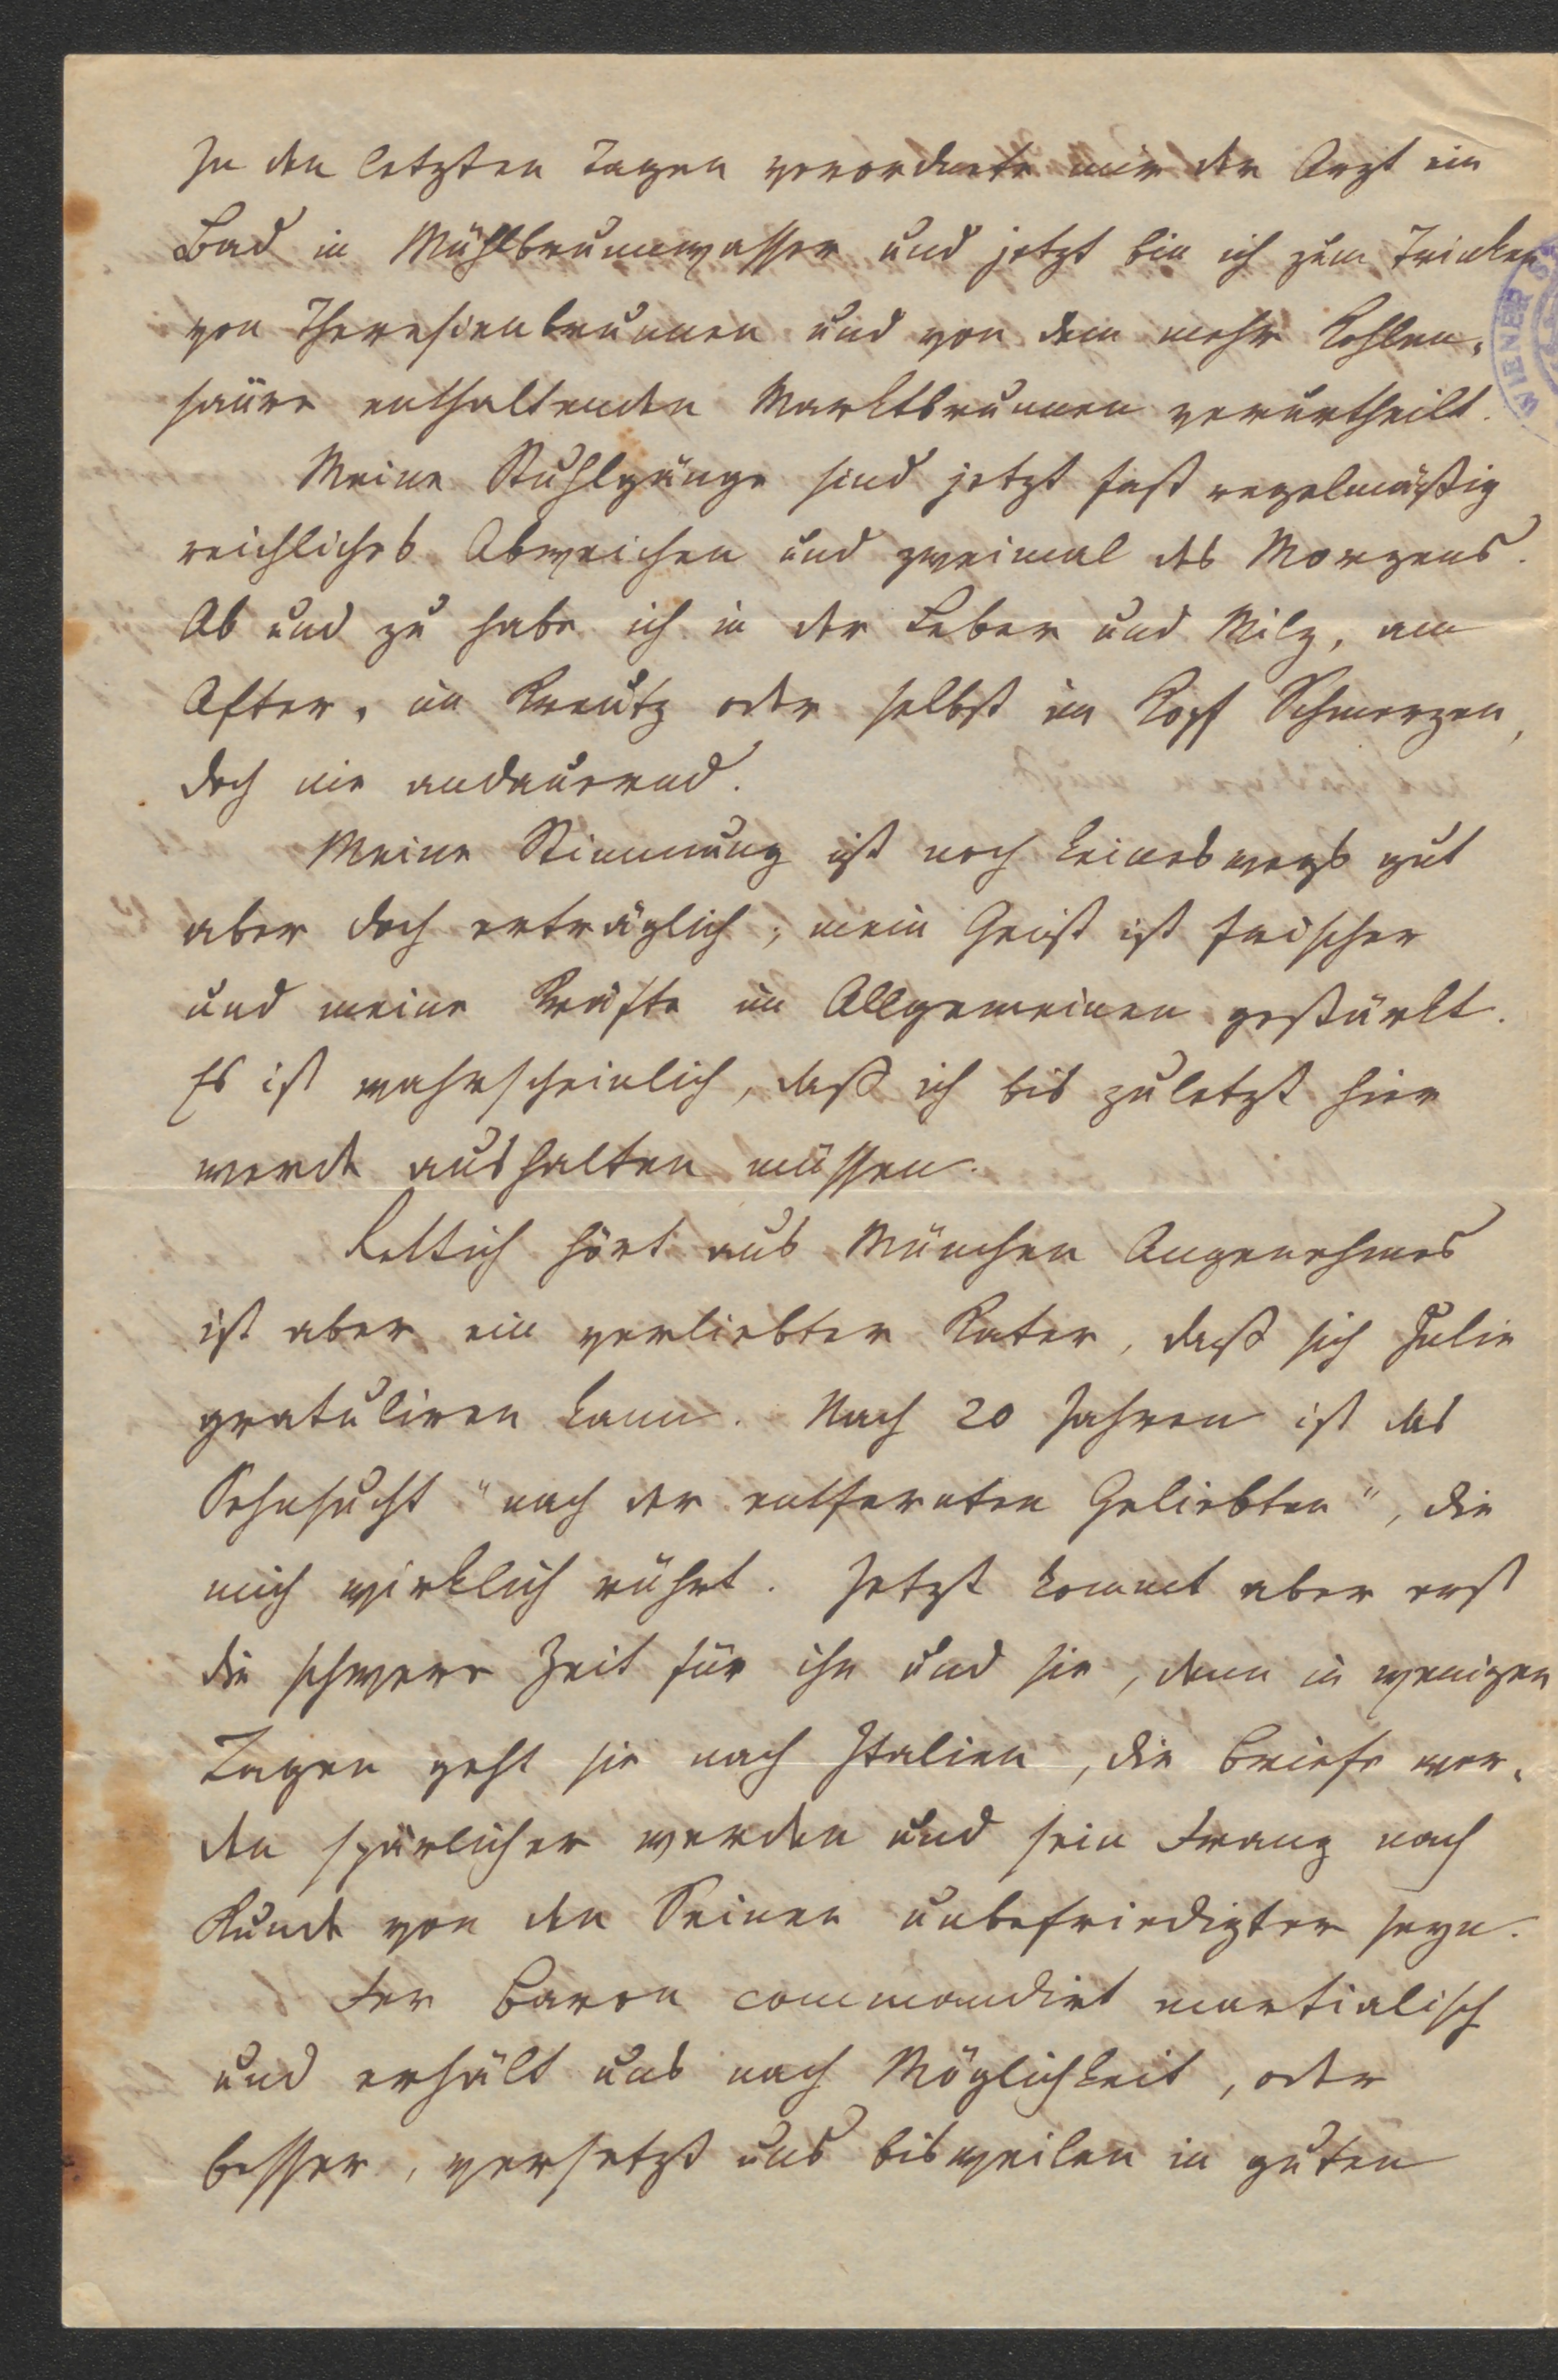 In den letzten Tagen verordnete mir der Arzt ein
Bad in Mühlbrunnwasser und jetzt bin ich zum Trinken
von Theresienbrunnen und von dem mehr Kohlen-
säure enthaltenden Marktbrunnen verurtheilt.
Meine Stuhlgänge sind jetzt fast regelmäßig
reichliches Abweichen und zweimal des Morgens.
Ab und zu habe ich in der Leber und Milz, am
After, im Kreutz oder selbst im Kopf Schmerzen,
doch nie andauernd.
Meine Stimmung ist noch keineswegs gut
aber doch erträglich; mein Geist ist frischer
und meine Kräfte im Allgemeinen gestärkt.
Es ist wahrscheinlich, daß ich bis zuletzt hier
werde aushalten müssen.
Rettich hört aus München Angenehmes
ist aber ein verliebter Kater, daß sich Julie
gratuliren kann. Nach 20 Jahren ist das
Sehnsucht "nach der entfernten Geliebten", die
mich wirklich rührt. Jetzt kommt aber erst
die schwere Zeit für ihn und sie, denn in wenigen
Tagen geht sie nach Italien, die Briefe wer-
den spärlicher werden und sein Drang nach
Kunde von den Seinen unbefriedigter seyn.
Der Baron commandirt martialisch
und erhält uns nach Möglichkeit, oder
besser, versetzt uns bisweilen in guten
WIENER